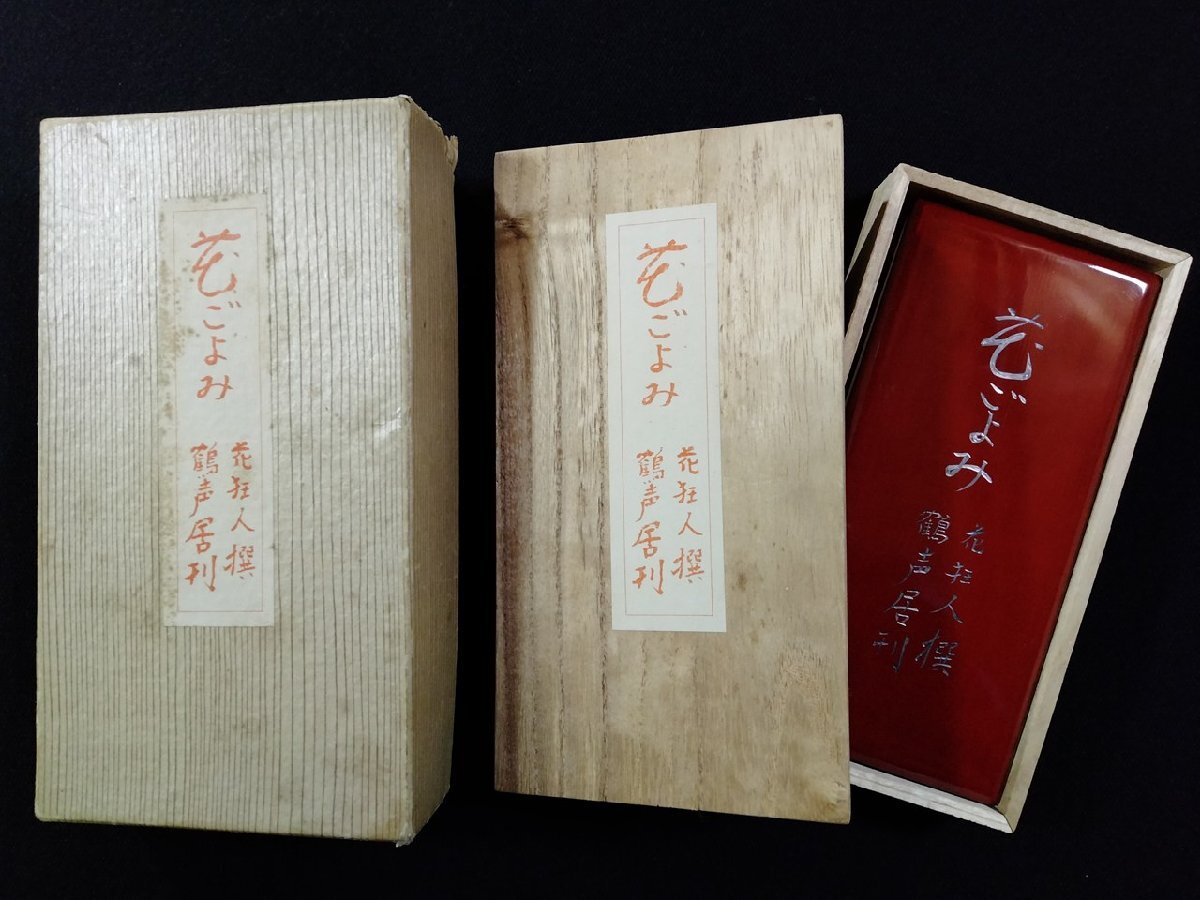 花ごよみ
花狂人撰
鶴声居刊
花ごよみ
花狂人撰
鶴声居刊
花ごよみ
花狂人撰
鶴声居刊